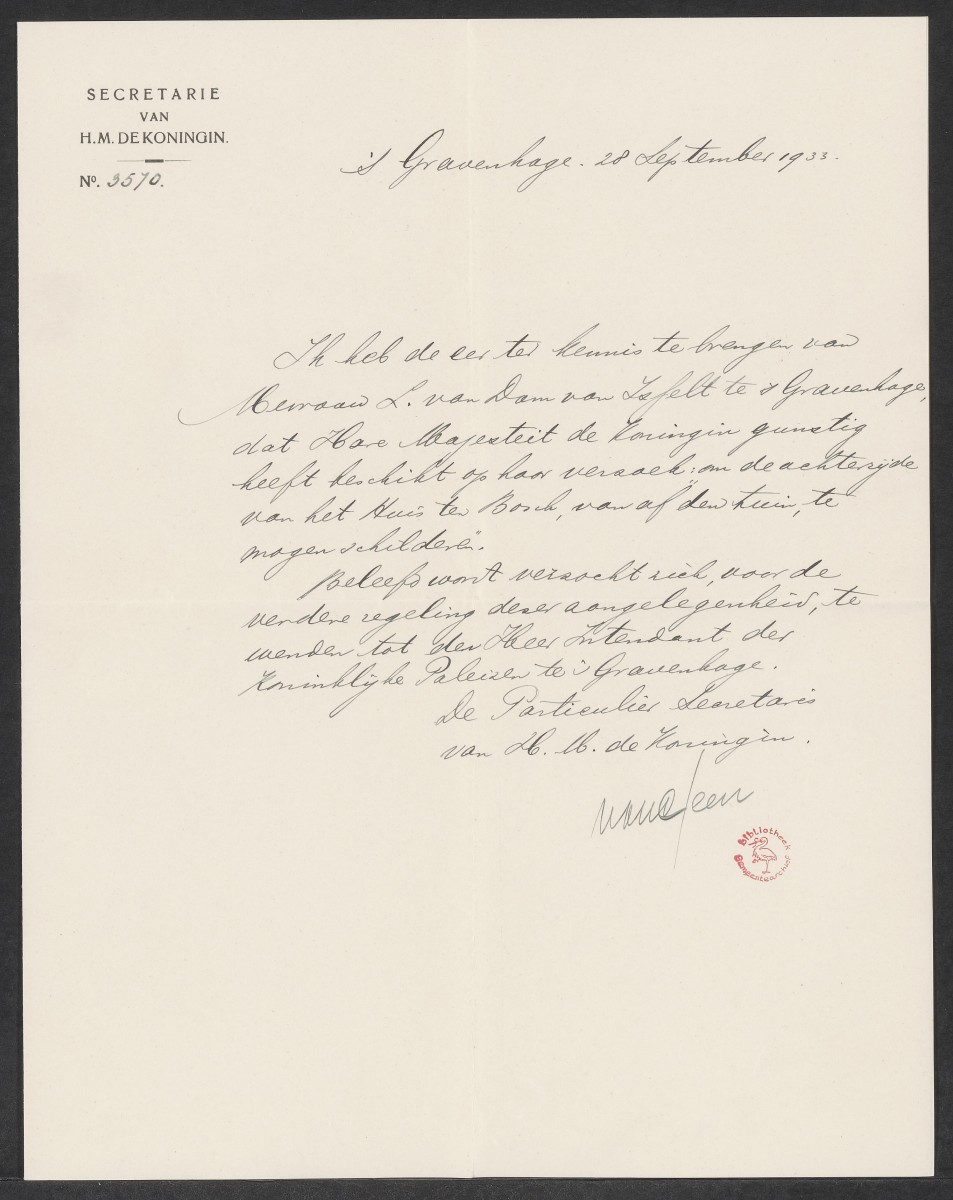 SECRETARIE
VAN
H.M. DE KONINGIN.
No. 3570.
's Gravenhage. 28 September 1933.
Ik heb de eer ter kennis te brengen van
Mevrouw L. van Dam van Isselt te 's Gravenhage,
dat Hare Majesteit de Koningin gunstig
heeft beschikt op haar verzoek: om de achterzijde
van het Huis ten Bosch, van af "den tuin, te
mogen schilderen".
Beleefd wordt verzocht zich, voor de
verdere regeling dezer aangelegenheid, te
wenden tot den Heer Intendant der
Koninklijke Paleizen te 's Gravenhage.
De Particulier Secretaris
van H. M. de Koningin.
Bibliotheek
Gemeentearchief